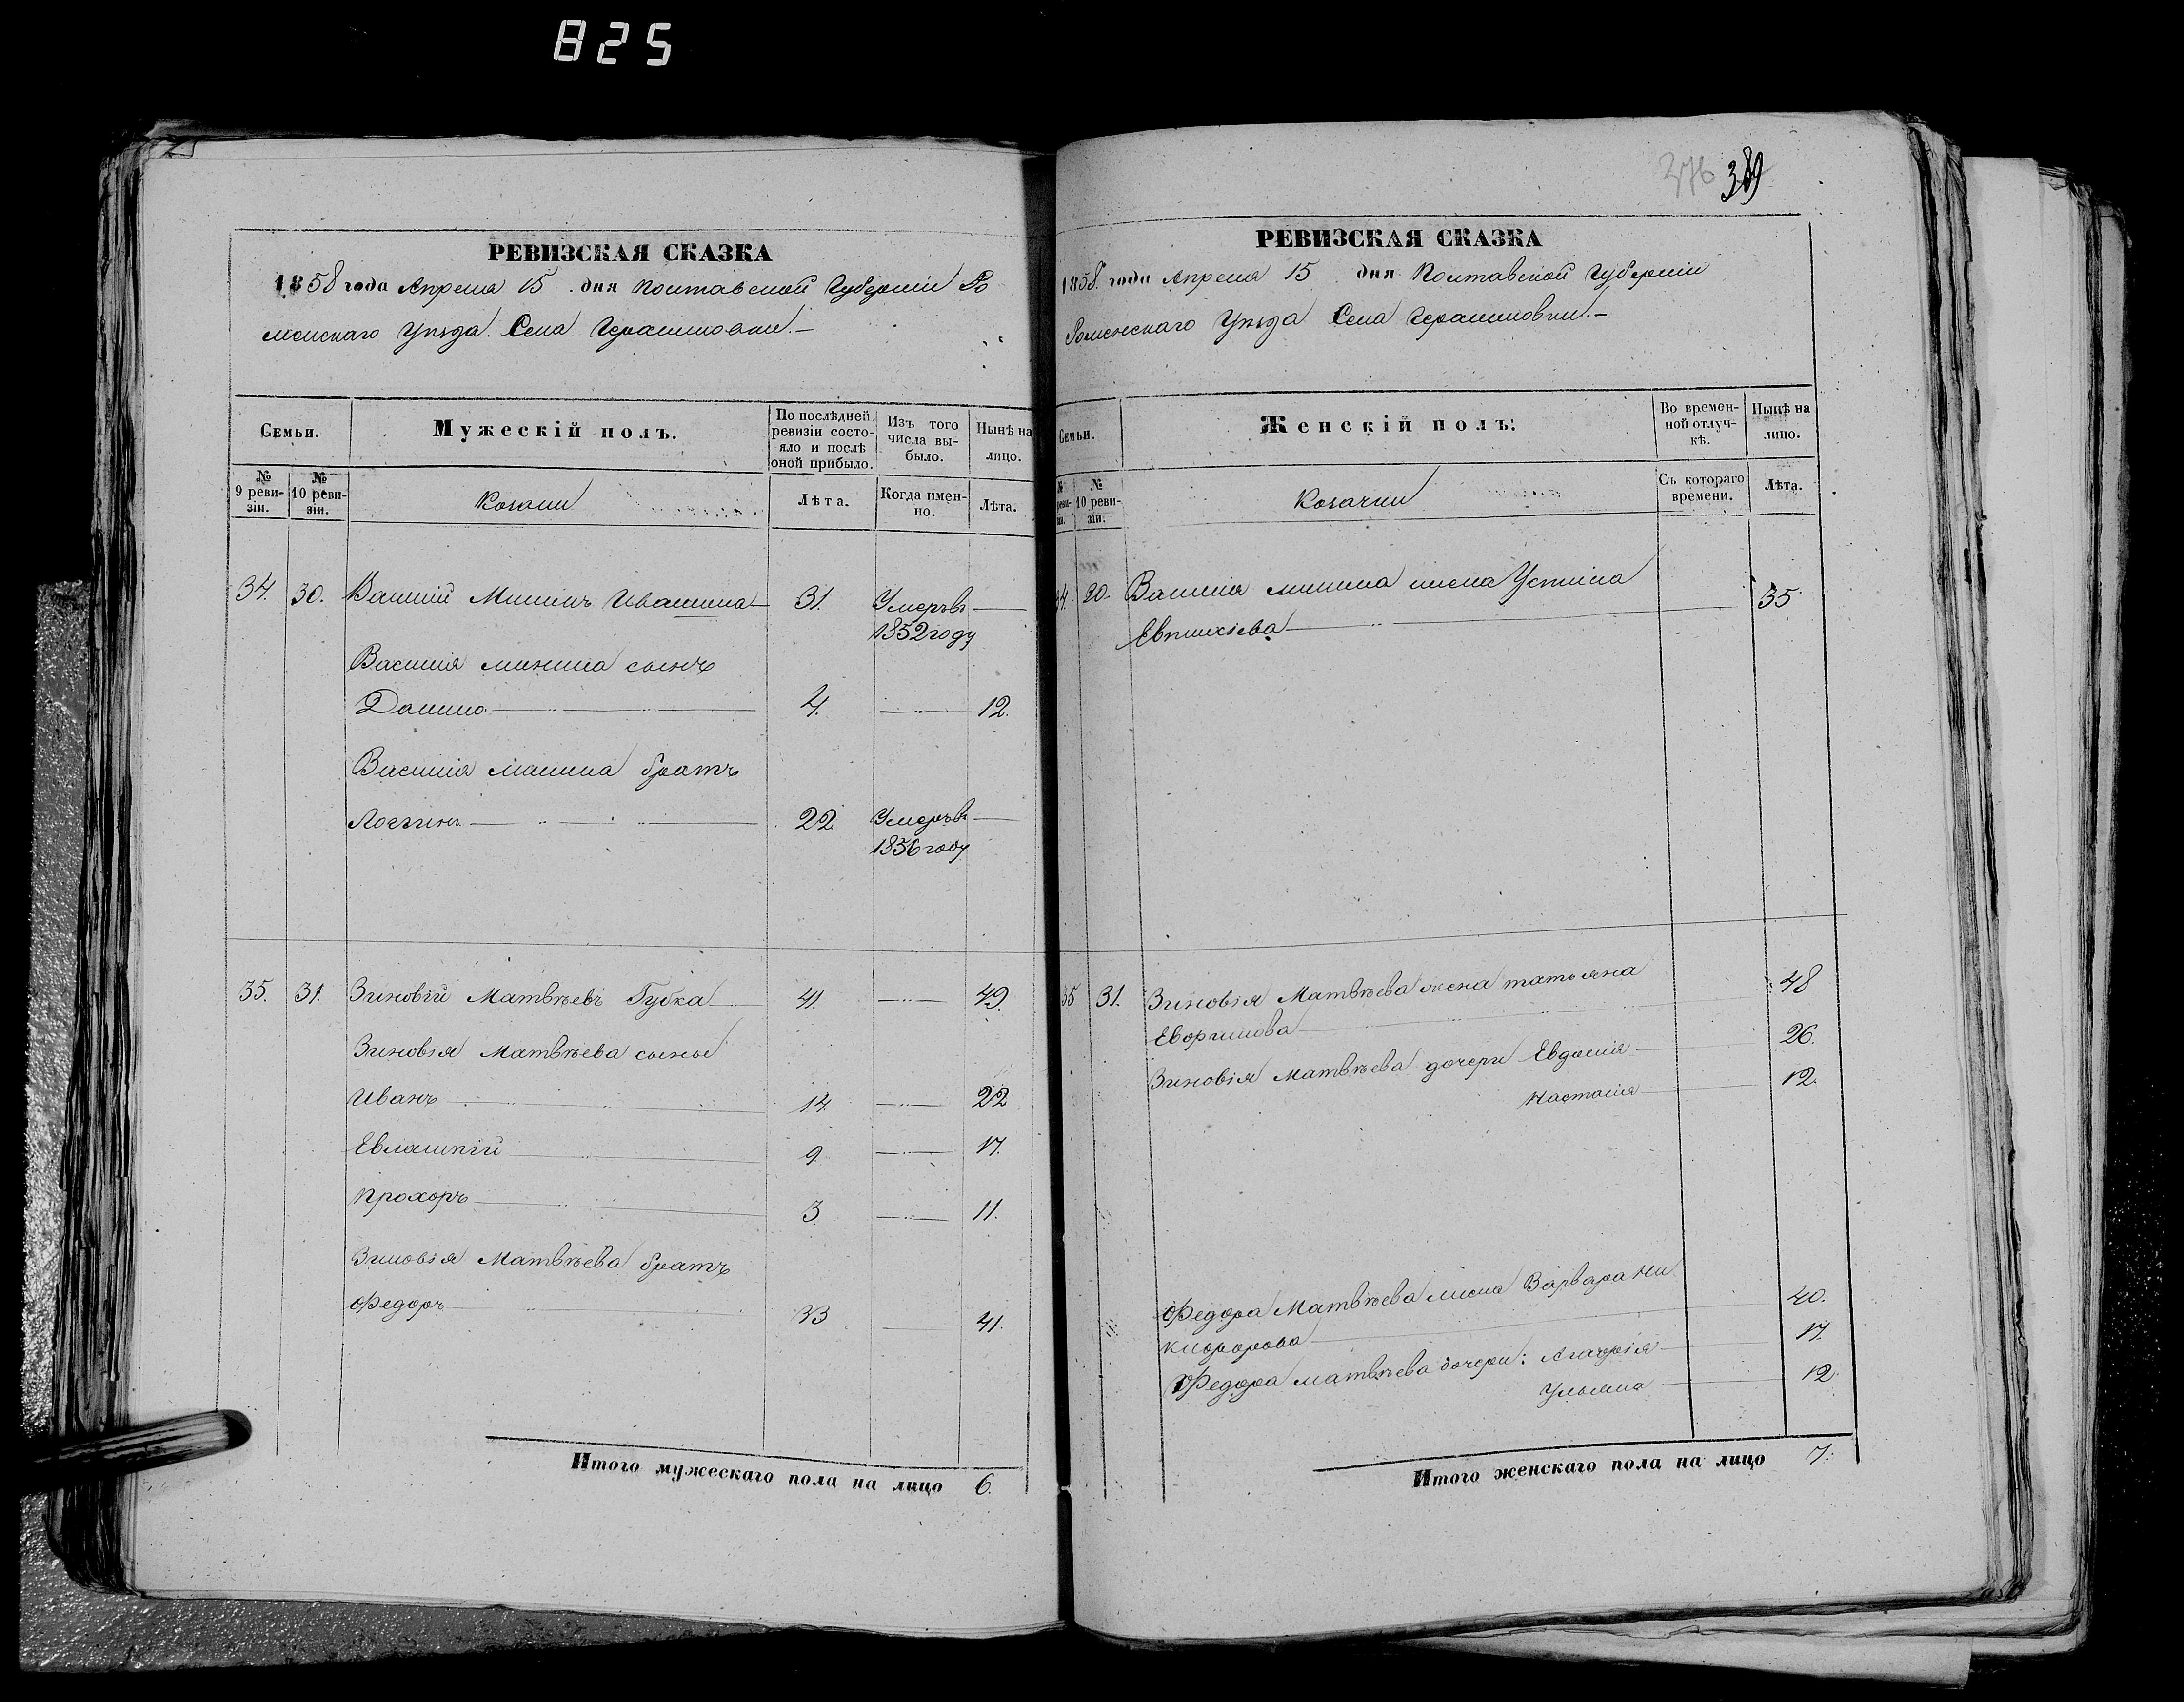 825
РЕВИЗСКАЯ СКАЗКА
1858 года Апреля 15 дня Полтавской Губернии Ро
менскаго Уѣзда Села Герасимовки.—
Семьи.
Мужескій полъ.
По послѣдней ревизіи состояло и послѣ оной прибыло.
Изъ того числа выбыло.
Нынѣ на лицо.
№ 9 ревизіи.
№ 10 ревизіи.
Козаки
Лѣта.
Когда именно.
Лѣта.
34. 30. Василій Мининъ Ивашина 31. Умеръ въ
1852 году
Василія Минина сынъ
Данило 4. 12.
Василія Минина братъ
Логгинъ 22 Умеръ въ
1856 году
35. 31. Зиновій Матвѣевъ Губка 41. 49.
Зиновія Матвѣева сыновья
Иванъ 14. 22
Евлампій 9. 17.
Прохоръ 3 11.
Зиновія Матвѣева братъ
Федоръ 33 41.
Итого мужескаго пола на лицо 6.
376 389
РЕВИЗСКАЯ СКАЗКА
1858 года Апреля 15 дня Полтавской Губерніи
Роменскаго Уѣзда Села Герасимовки.—
Семьи.
Женскій полъ.
Во временной отлучкѣ.
Нынѣ на лицо.
№ 10 ревизіи.
Козачки
Съ котораго времени.
Лѣта.
34. 20. Василія Минина жена Устина 35
35 31. Зиновія Матвѣева жена татьяна 48
Зиновія Матвѣева дочери Евдокія 26.
Настасія 12.
Федора Матвѣева жена Варвара Ни
кифорова 40.
Федора Матвѣева дочери: Агафія 17.
Ульяна 12
Итого женскаго пола на лицо 7.